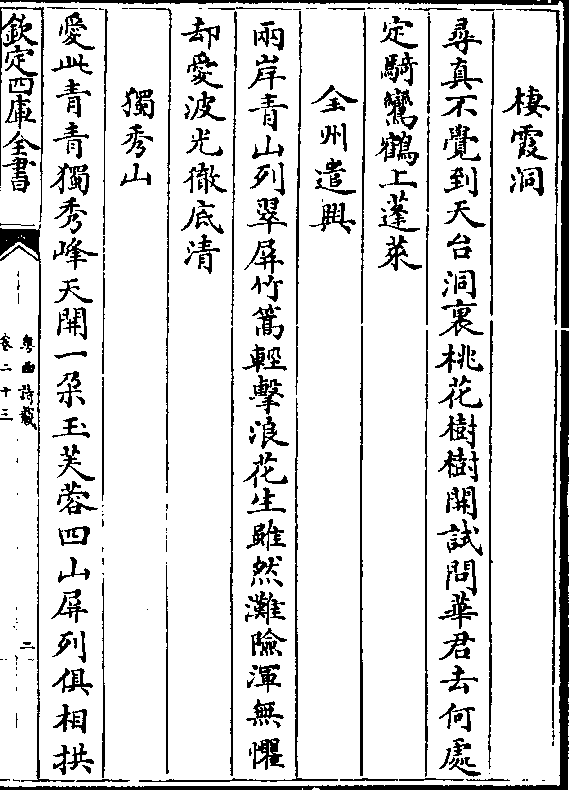 棲霞洞
尋真不覺到天台洞裏桃花樹樹開試問華君去何處
定騎鸞鶴上蓬萊
全州遣興
兩岸青山列翠屏竹篙輕擊浪花生雖然灘險渾無懼
却愛波光徹底清
獨秀山
愛此青青獨秀峰天開一朶玉芙蓉四山屏列俱相拱
欽定四庫全書
粤西詩載
卷二十三
二